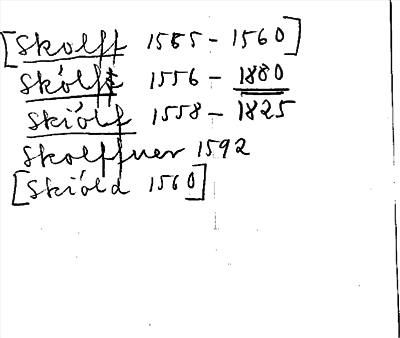 [Skolff 1555 - 1560]
Skólft 1556 - 1880
Skiólf 1558 - 1825
Skolffuer 1592
[Skióld 1560]